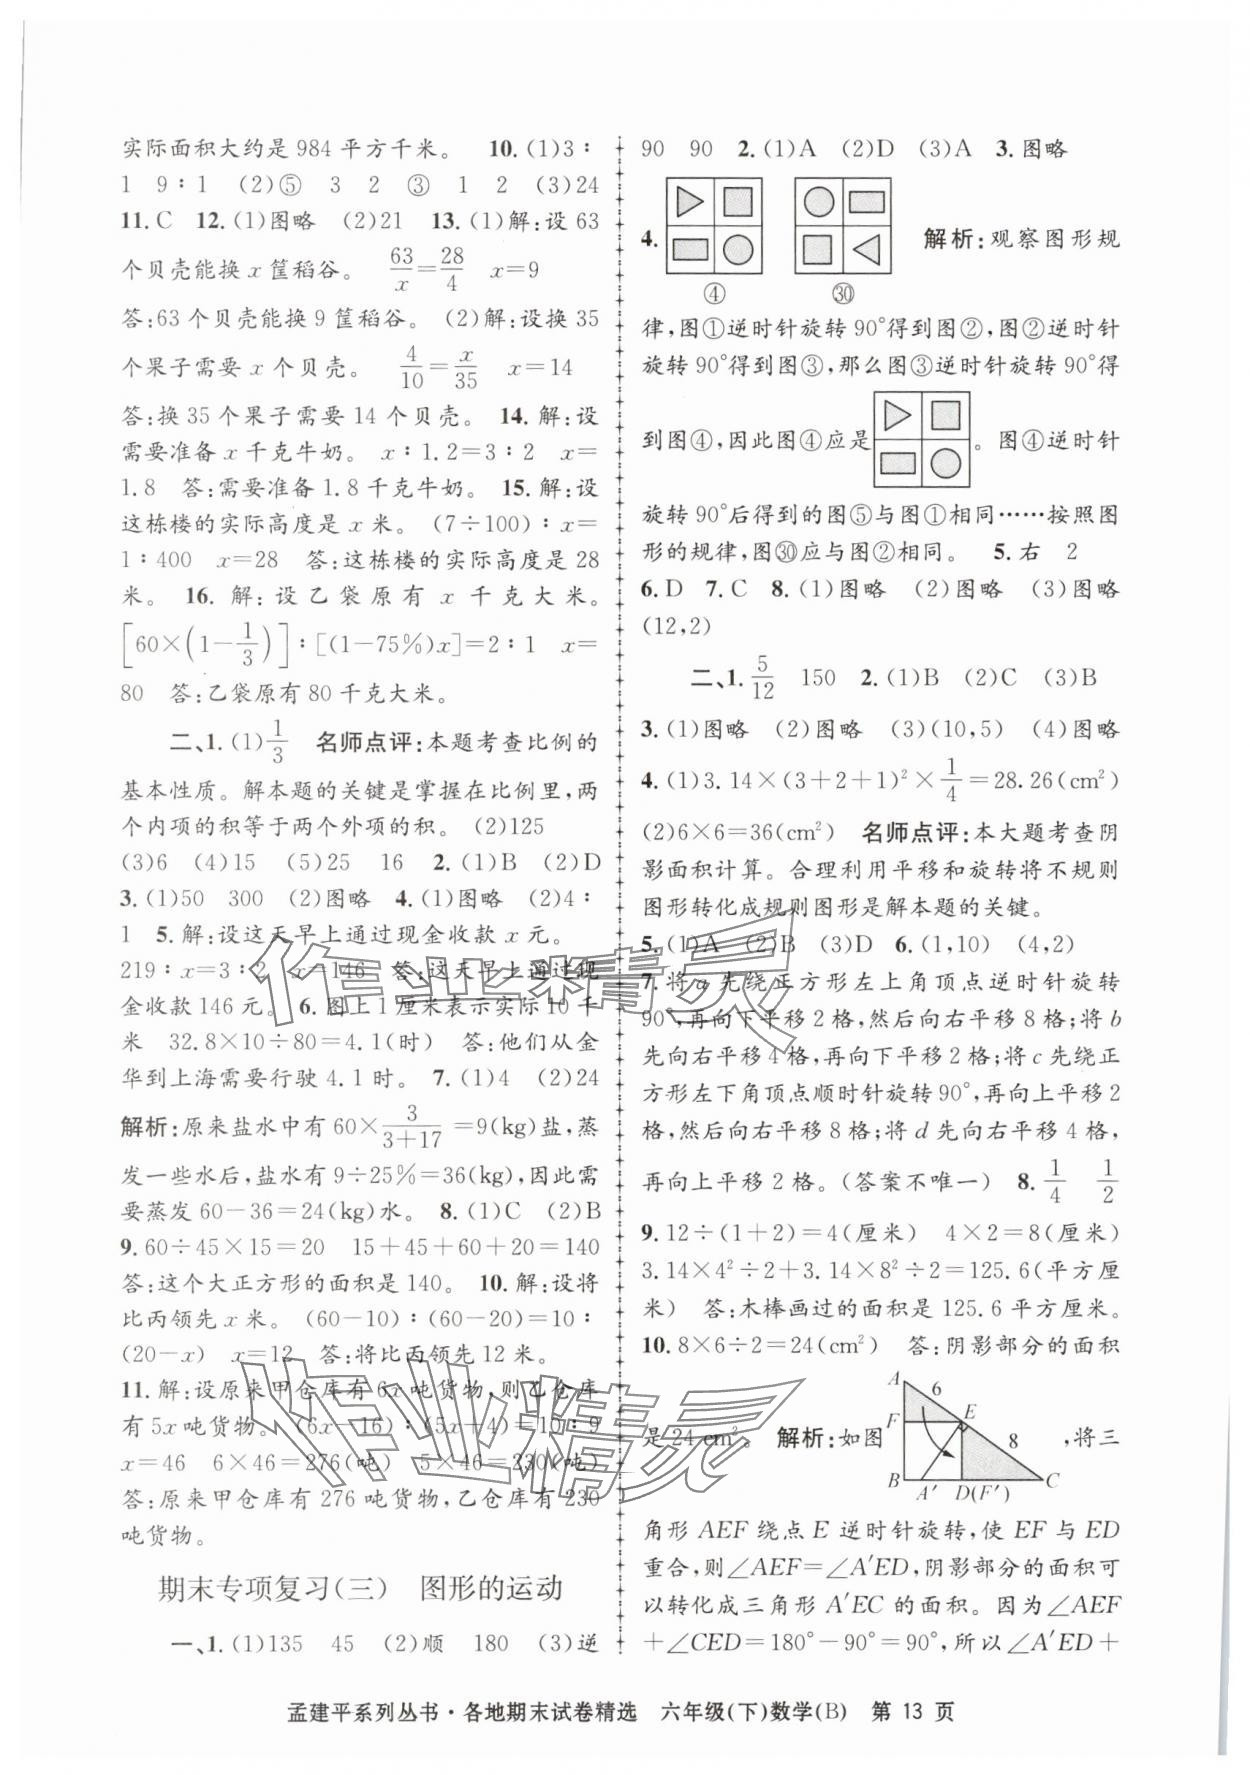 实际面积大约是 984 平方千米。 10. (1)3∶
1 9∶1 (2)⑤ 3 2 ③ 1 2 (3)24
11. C 12. (1)图略 (2)21 13. (1)解:设 63
个贝壳能换 x 筐稻谷。 63/x=28/4 x=9
答:63 个贝壳能换 9 筐稻谷。 (2)解:设换 35
个果子需要 x 个贝壳。 4/10=x/35 x=14
答:换 35 个果子需要 14 个贝壳。 14. 解:设
需要准备 x 千克牛奶。 x∶1.2=3∶2 x=
1.8 答:需要准备 1.8 千克牛奶。 15. 解:设
这栋楼的实际高度是 x 米。 (7÷100)∶x=
1∶400 x=28 答:这栋楼的实际高度是 28
米。 16. 解:设乙袋原有 x 千克大米。
[60×(1-1/3)]∶[(1-75%)x]=2∶1 x=
80 答:乙袋原有 80 千克大米。
二、1. (1)1/3 名师点评:本题考查比例的
基本性质。解本题的关键是掌握在比例里,两
个内项的积等于两个外项的积。 (2)125
(3)6 (4)15 (5)25 16 2. (1)B (2)D
3. (1)50 300 (2)图略 4. (1)图略 (2)4∶
1 5. 解:设这天早上通过现金收款 x 元。
219∶x=3∶2 x=146 答:这天早上通过现
金收款 146 元。 6. 图上 1 厘米表示实际 10 千
米 32.8×10÷80=4.1(时) 答:他们从金
华到上海需要行驶 4.1 时。 7. (1)4 (2)24
解析:原来盐水中有 60×3/(3+17)=9(kg)盐,蒸
发一些水后,盐水有 9÷25%=36(kg),因此需
要蒸发 60-36=24(kg)水。 8. (1)C (2)B
9. 60÷45×15=20 15+45+60+20=140
答:这个大正方形的面积是 140。 10. 解:设将
比丙领先 x 米。 (60-10)∶(60-20)=10∶
(20-x) x=12 答:将比丙领先 12 米。
11. 解:设原来甲仓库有 6x 吨货物,则乙仓库
有 5x 吨货物。 (6x-16)∶(5x+4)=10∶9
x=46 6×46=276(吨) 5×46=230(吨)
答:原来甲仓库有 276 吨货物,乙仓库有 230
吨货物。
期末专项复习(三) 图形的运动
一、1. (1)135 45 (2)顺 180 (3)逆
90 90 2. (1)A (2)D (3)A 3. 图略
4. ④ ㉚ 解析:观察图形规
律,图①逆时针旋转 90°得到图②,图②逆时针
旋转 90°得到图③,那么图③逆时针旋转 90°得
到图④,因此图④应是 。图④逆时针
旋转 90°后得到的图⑤与图①相同……按照图
形的规律,图㉚应与图②相同。 5. 右 2
6. D 7. C 8. (1)图略 (2)图略 (3)图略
(12,2)
二、1. 5/12 150 2. (1)B (2)C (3)B
3. (1)图略 (2)图略 (3)(10,5) (4)图略
4. (1)3.14×(3+2+1)²×1/4=28.26(cm²)
(2)6×6=36(cm²) 名师点评:本大题考查阴
影面积计算。合理利用平移和旋转将不规则
图形转化成规则图形是解本题的关键。
5. (1)A (2)B (3)D 6. (1,10) (4,2)
7. 将 a 先绕正方形左上角顶点逆时针旋转
90°,再向下平移 2 格,然后向右平移 8 格;将 b
先向右平移 4 格,再向下平移 2 格;将 c 先绕正
方形左下角顶点顺时针旋转 90°,再向上平移 2
格,然后向右平移 8 格;将 d 先向右平移 4 格,
再向上平移 2 格。(答案不唯一) 8. 1/4 1/2
9. 12÷(1+2)=4(厘米) 4×2=8(厘米)
3.14×4²÷2+3.14×8²÷2=125.6(平方厘
米) 答:木棒画过的面积是 125.6 平方厘米。
10. 8×6÷2=24(cm²) 答:阴影部分的面积
是 24 cm²。 解析:如图 A 6 F E 8 B A′ D(F′) C ,将三
角形 AEF 绕点 E 逆时针旋转,使 EF 与 ED
重合,则∠AEF=∠A′ED,阴影部分的面积可
以转化成三角形 A′EC 的面积。因为∠AEF
+∠CED=180°-90°=90°,所以∠A′ED+
孟建平系列丛书·各地期末试卷精选 六年级(下)数学(B) 第 13 页
作业精灵
作业精灵